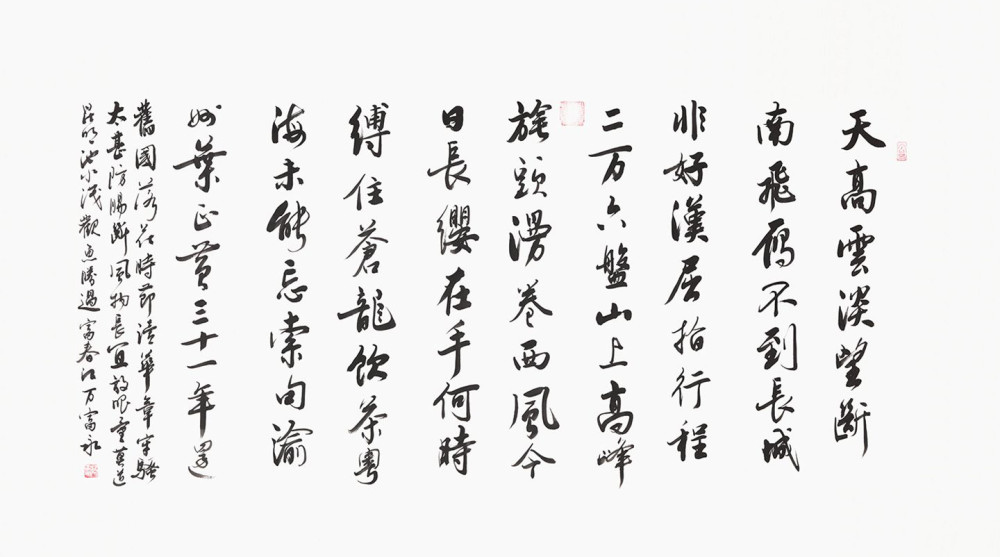 天高雲淡望斷
南飛鴈不到長城
非好漢屈指行程
二万六盤山上高峰
旄頭漫卷西風今
日長纓在手何時
縛住蒼龍飲茶粵
海未能忘索句渝
州葉正黃三十一年還
舊國落花時節讀華章牢騷
太甚防腸斷風物長宜放眼量莫道
昆明池水淺觀魚勝過富春江万富永